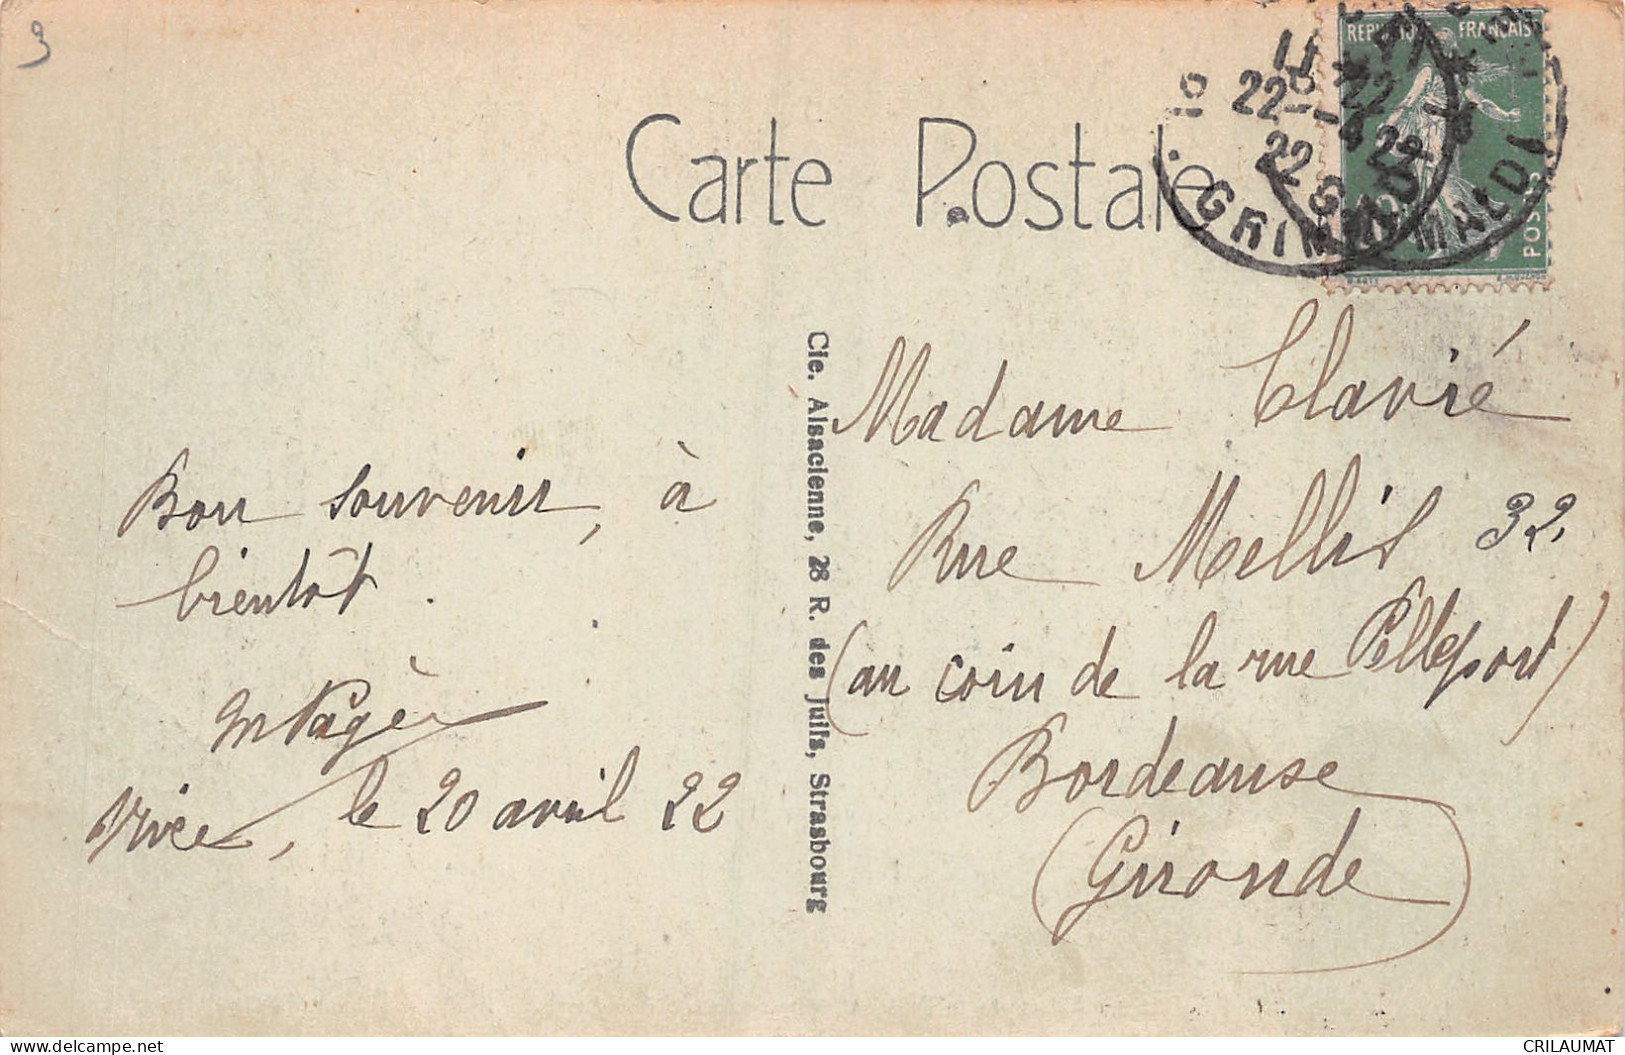 3
Carte Postale
RÉPUBLIQUE FRANÇAISE
POSTES
11
22 22
22 22
GRIMALDI
Cie. Alsacienne, 28 R. des Juifs, Strasbourg
Bon souvenir, à
bientôt.
le 20 avril 22
Madame Clavié
Rue Mellis 32.
(au coin de la rue Pelleport)
Bordeause
(Gironde)
delcampe.net
CRILAUMAT